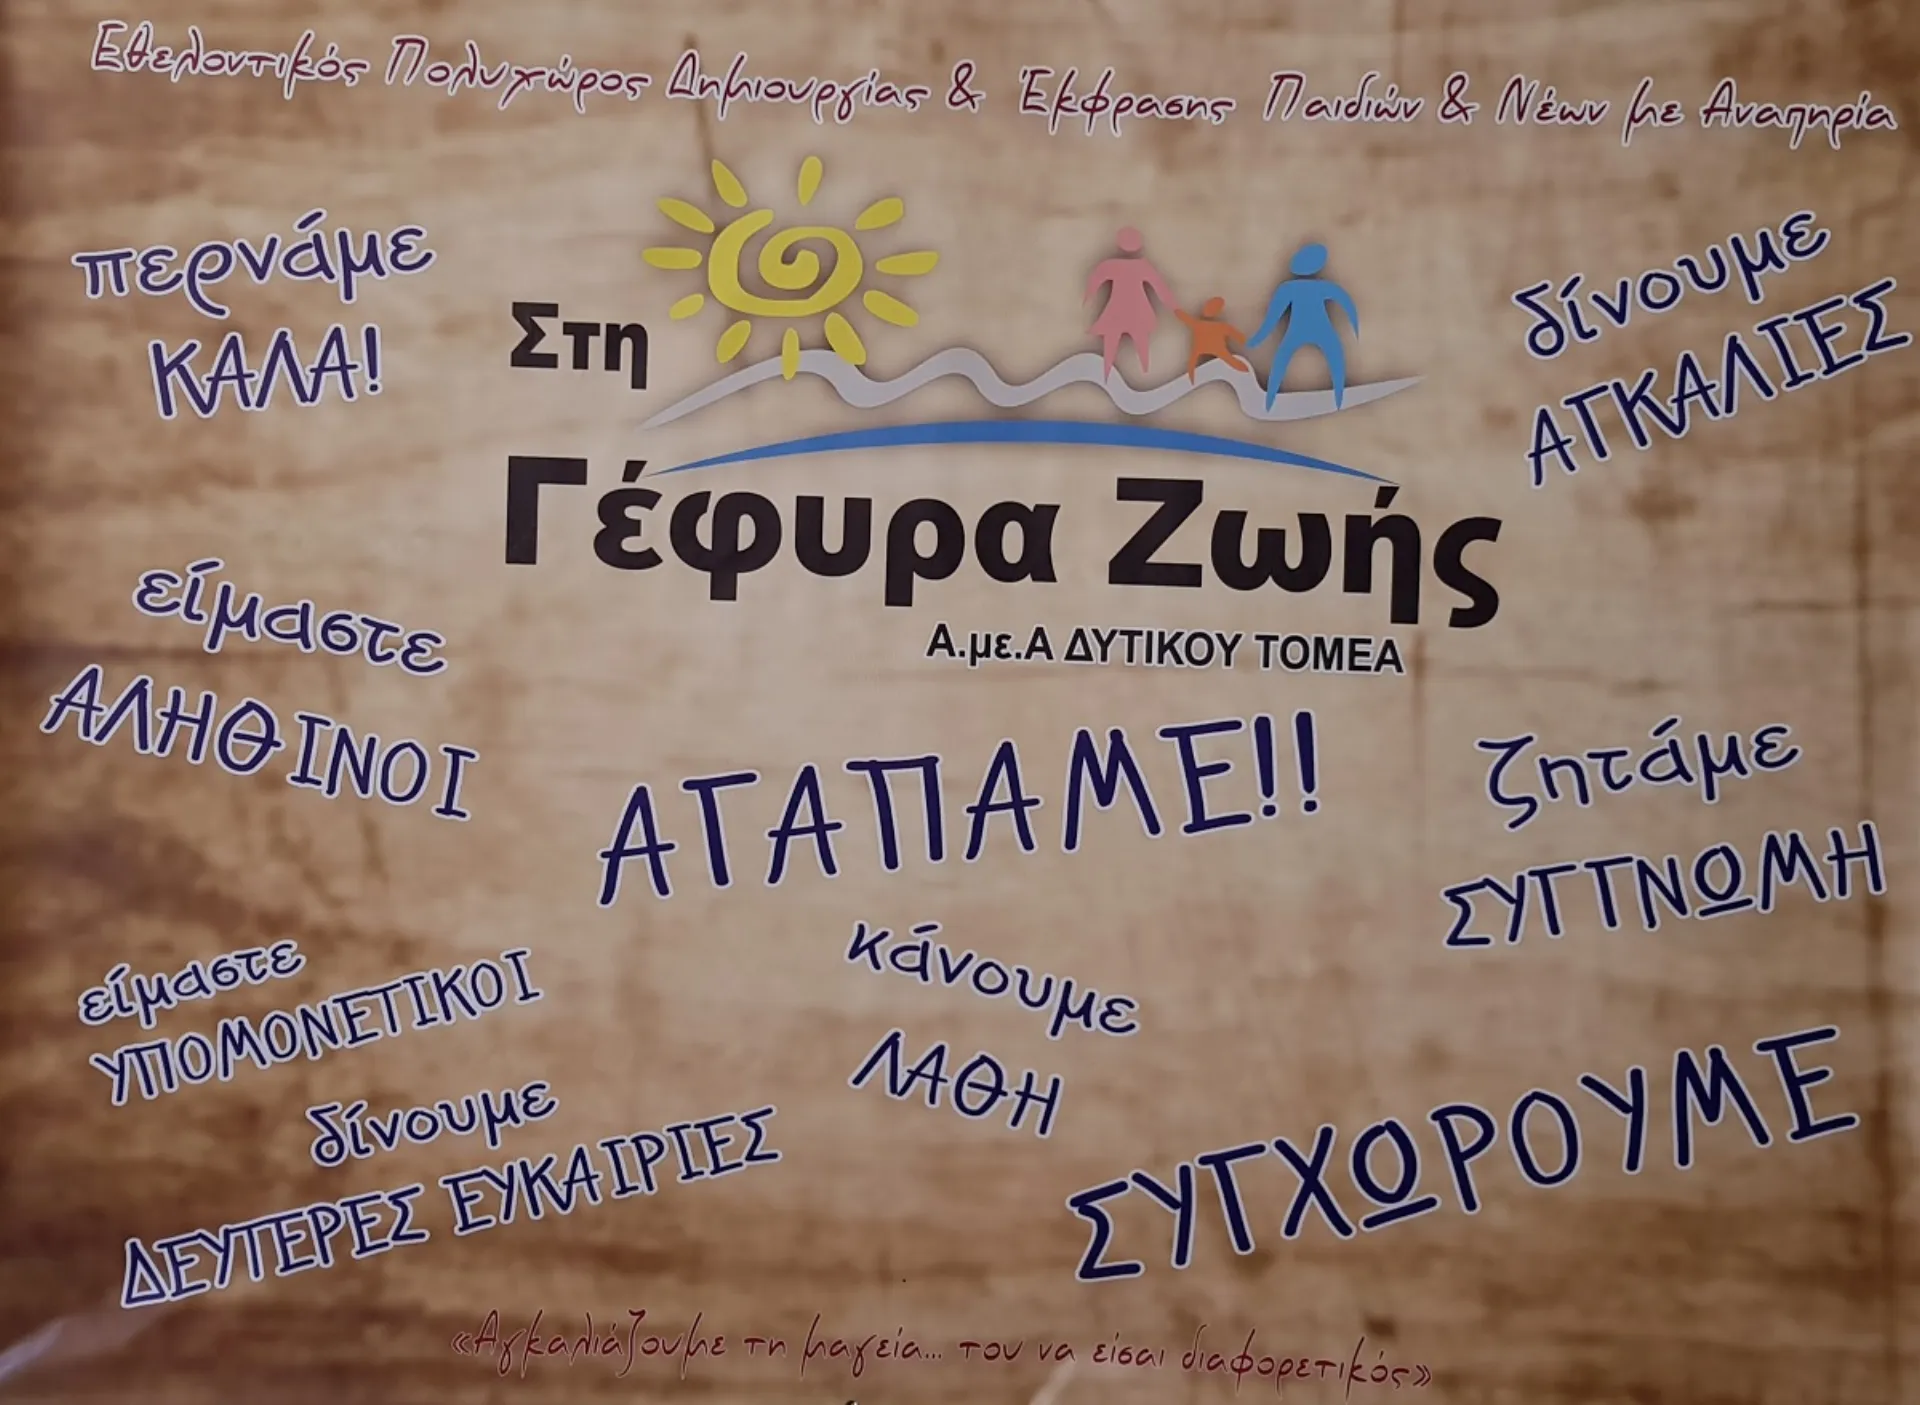 Εθελοντικός Πολυχώρος Δημιουργίας & Έκφρασης Παιδιών & Νέων με Αναπηρία
περνάμε
ΚΑΛΑ!
Στη
Γέφυρα Ζωής
Α.με.Α ΔΥΤΙΚΟΥ ΤΟΜΕΑ
δίνουμε
ΑΓΚΑΛΙΕΣ
είμαστε
ΑΛΗΘΙΝΟΙ
ΑΓΑΠΑΜΕ!!
ζητάμε
ΣΥΓΓΝΩΜΗ
είμαστε
ΥΠΟΜΟΝΕΤΙΚΟΙ
κάνουμε
ΛΑΘΗ
δίνουμε
ΔΕΥΤΕΡΕΣ ΕΥΚΑΙΡΙΕΣ
ΣΥΓΧΩΡΟΥΜΕ
«Αγκαλιάζουμε τη μαγεία... του να είσαι διαφορετικός»